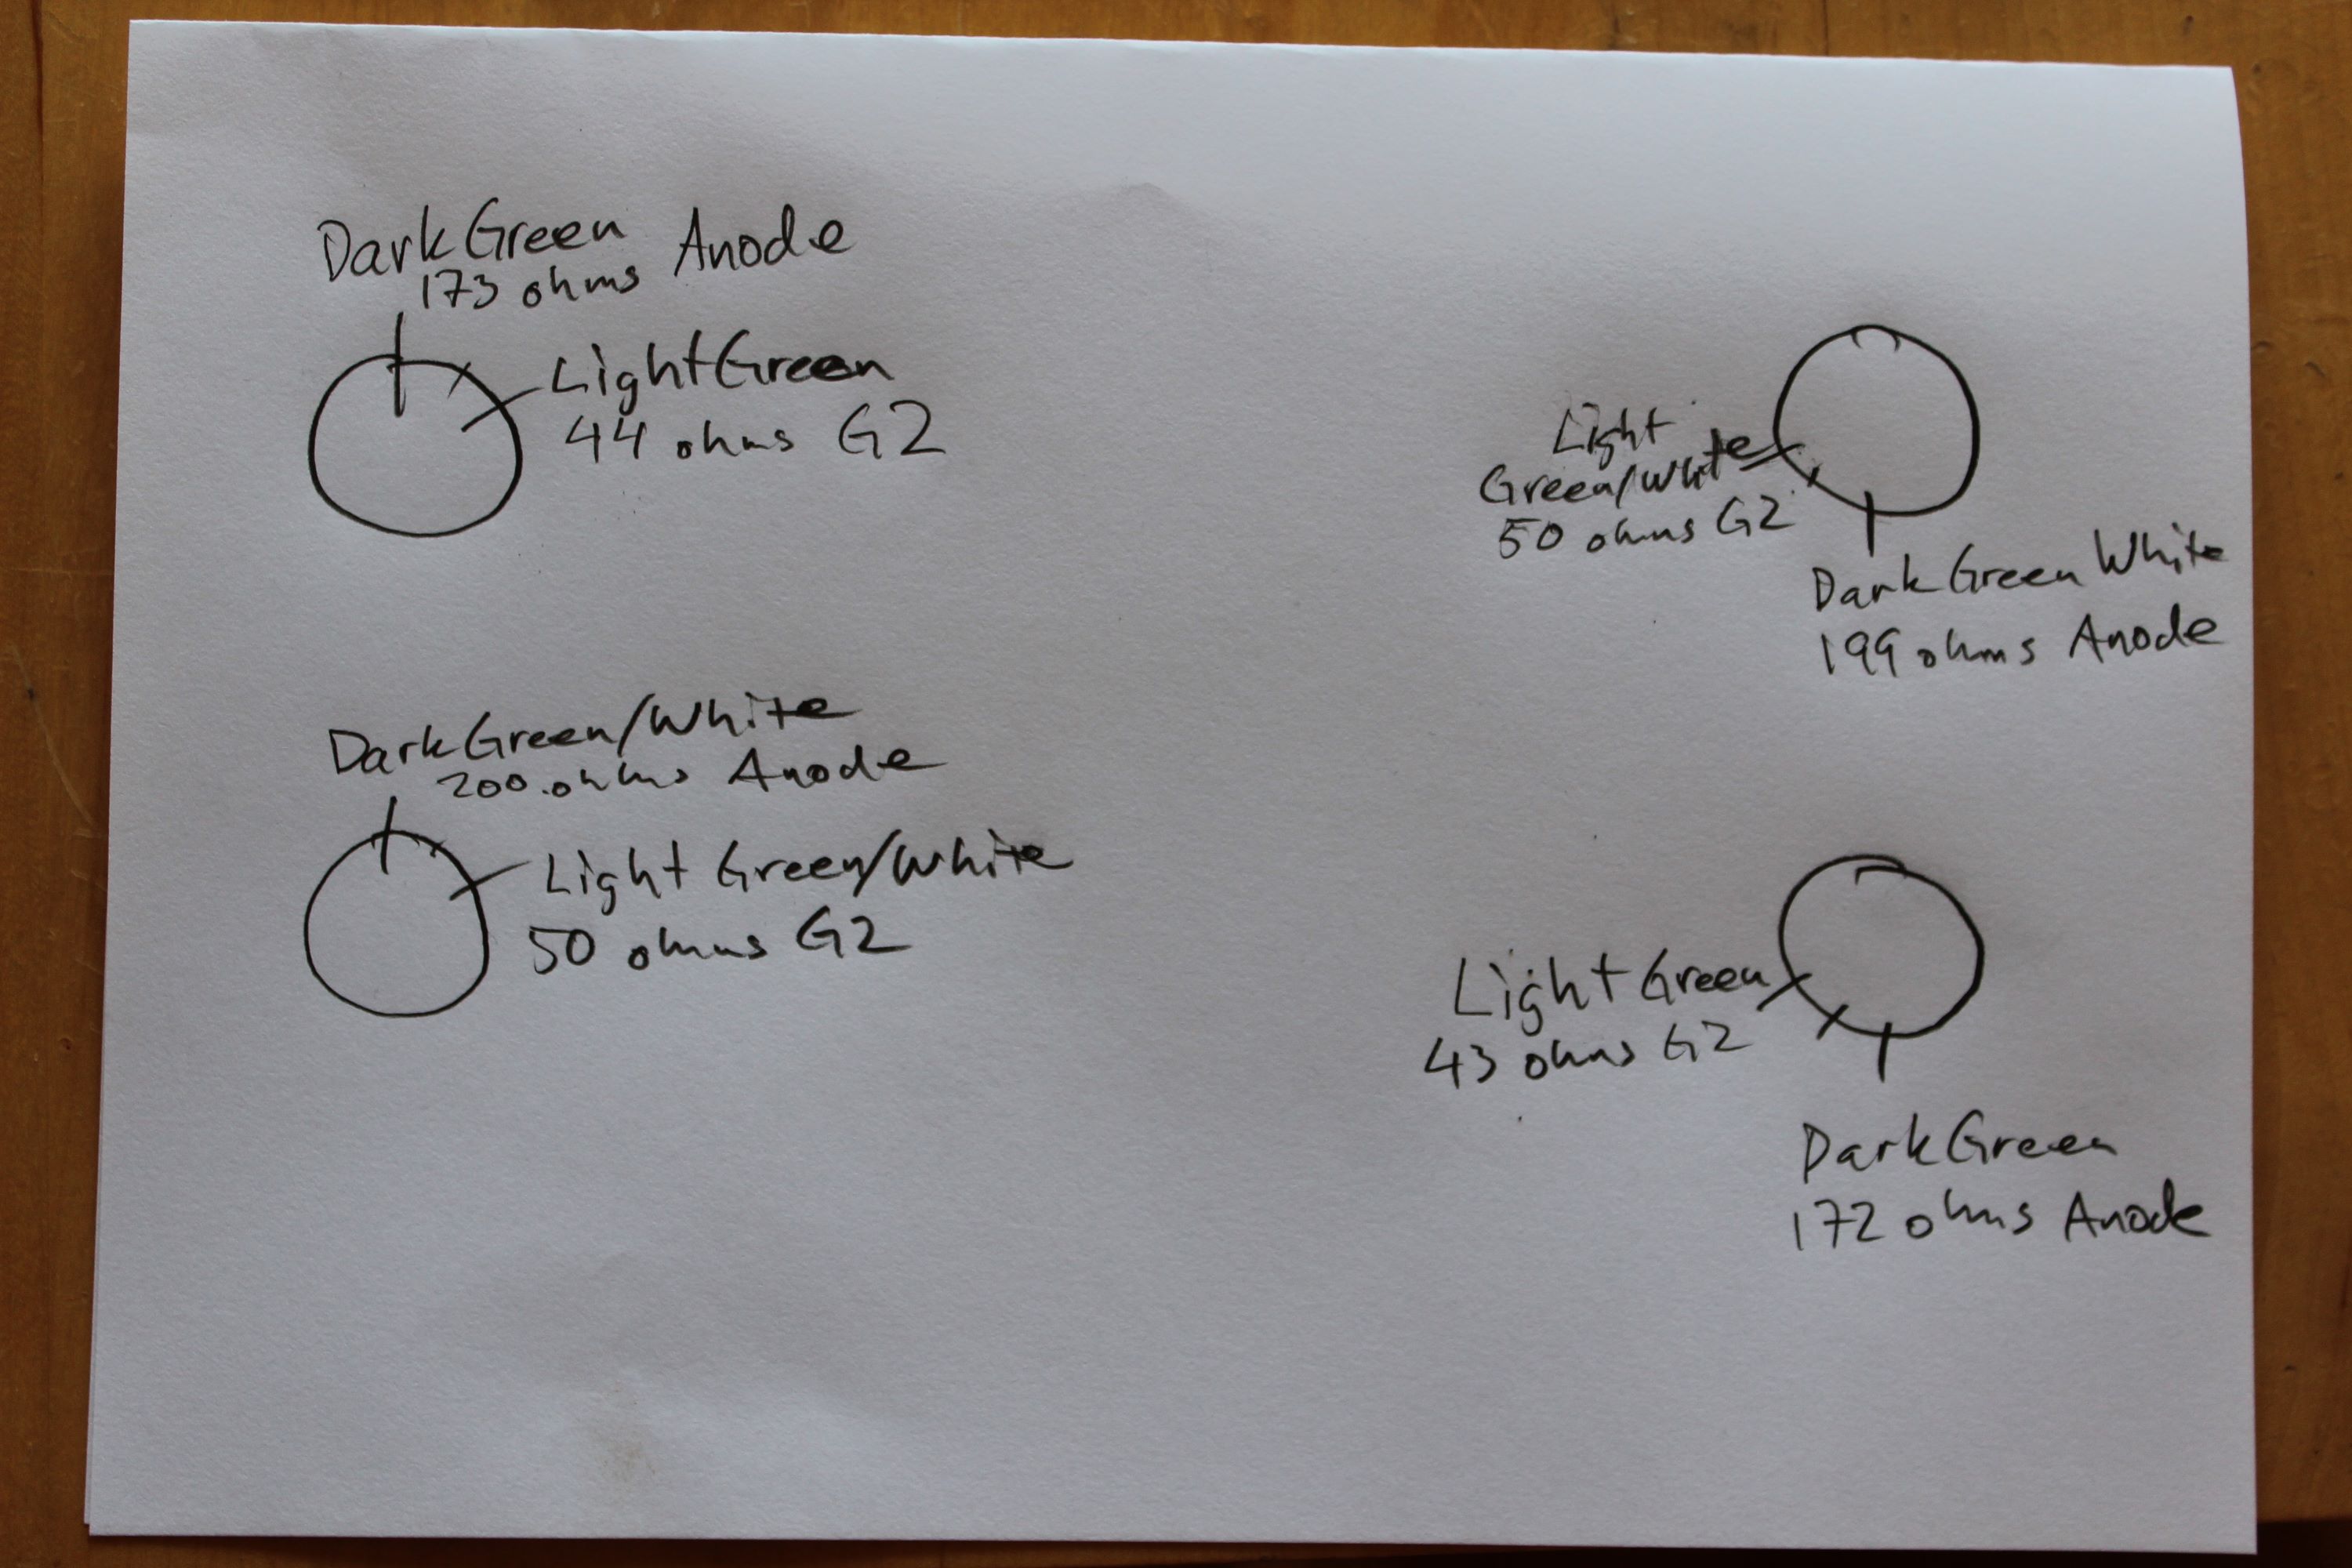 Dark Green Anode
173 ohms
Light Green
44 ohms G2
Dark Green/White
200 ohms Anode
Light Green/White
50 ohms G2
Light
Green/White
50 ohms G2
Dark Green White
199 ohms Anode
Light Green
43 ohms G2
Dark Green
172 ohms Anode